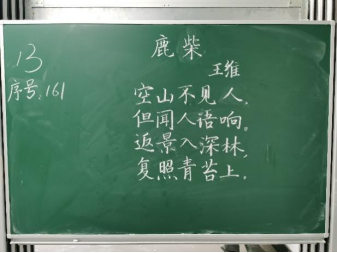 鹿柴
王维
13
序号:161
空山不见人,
但闻人语响。
返景入深林,
复照青苔上.